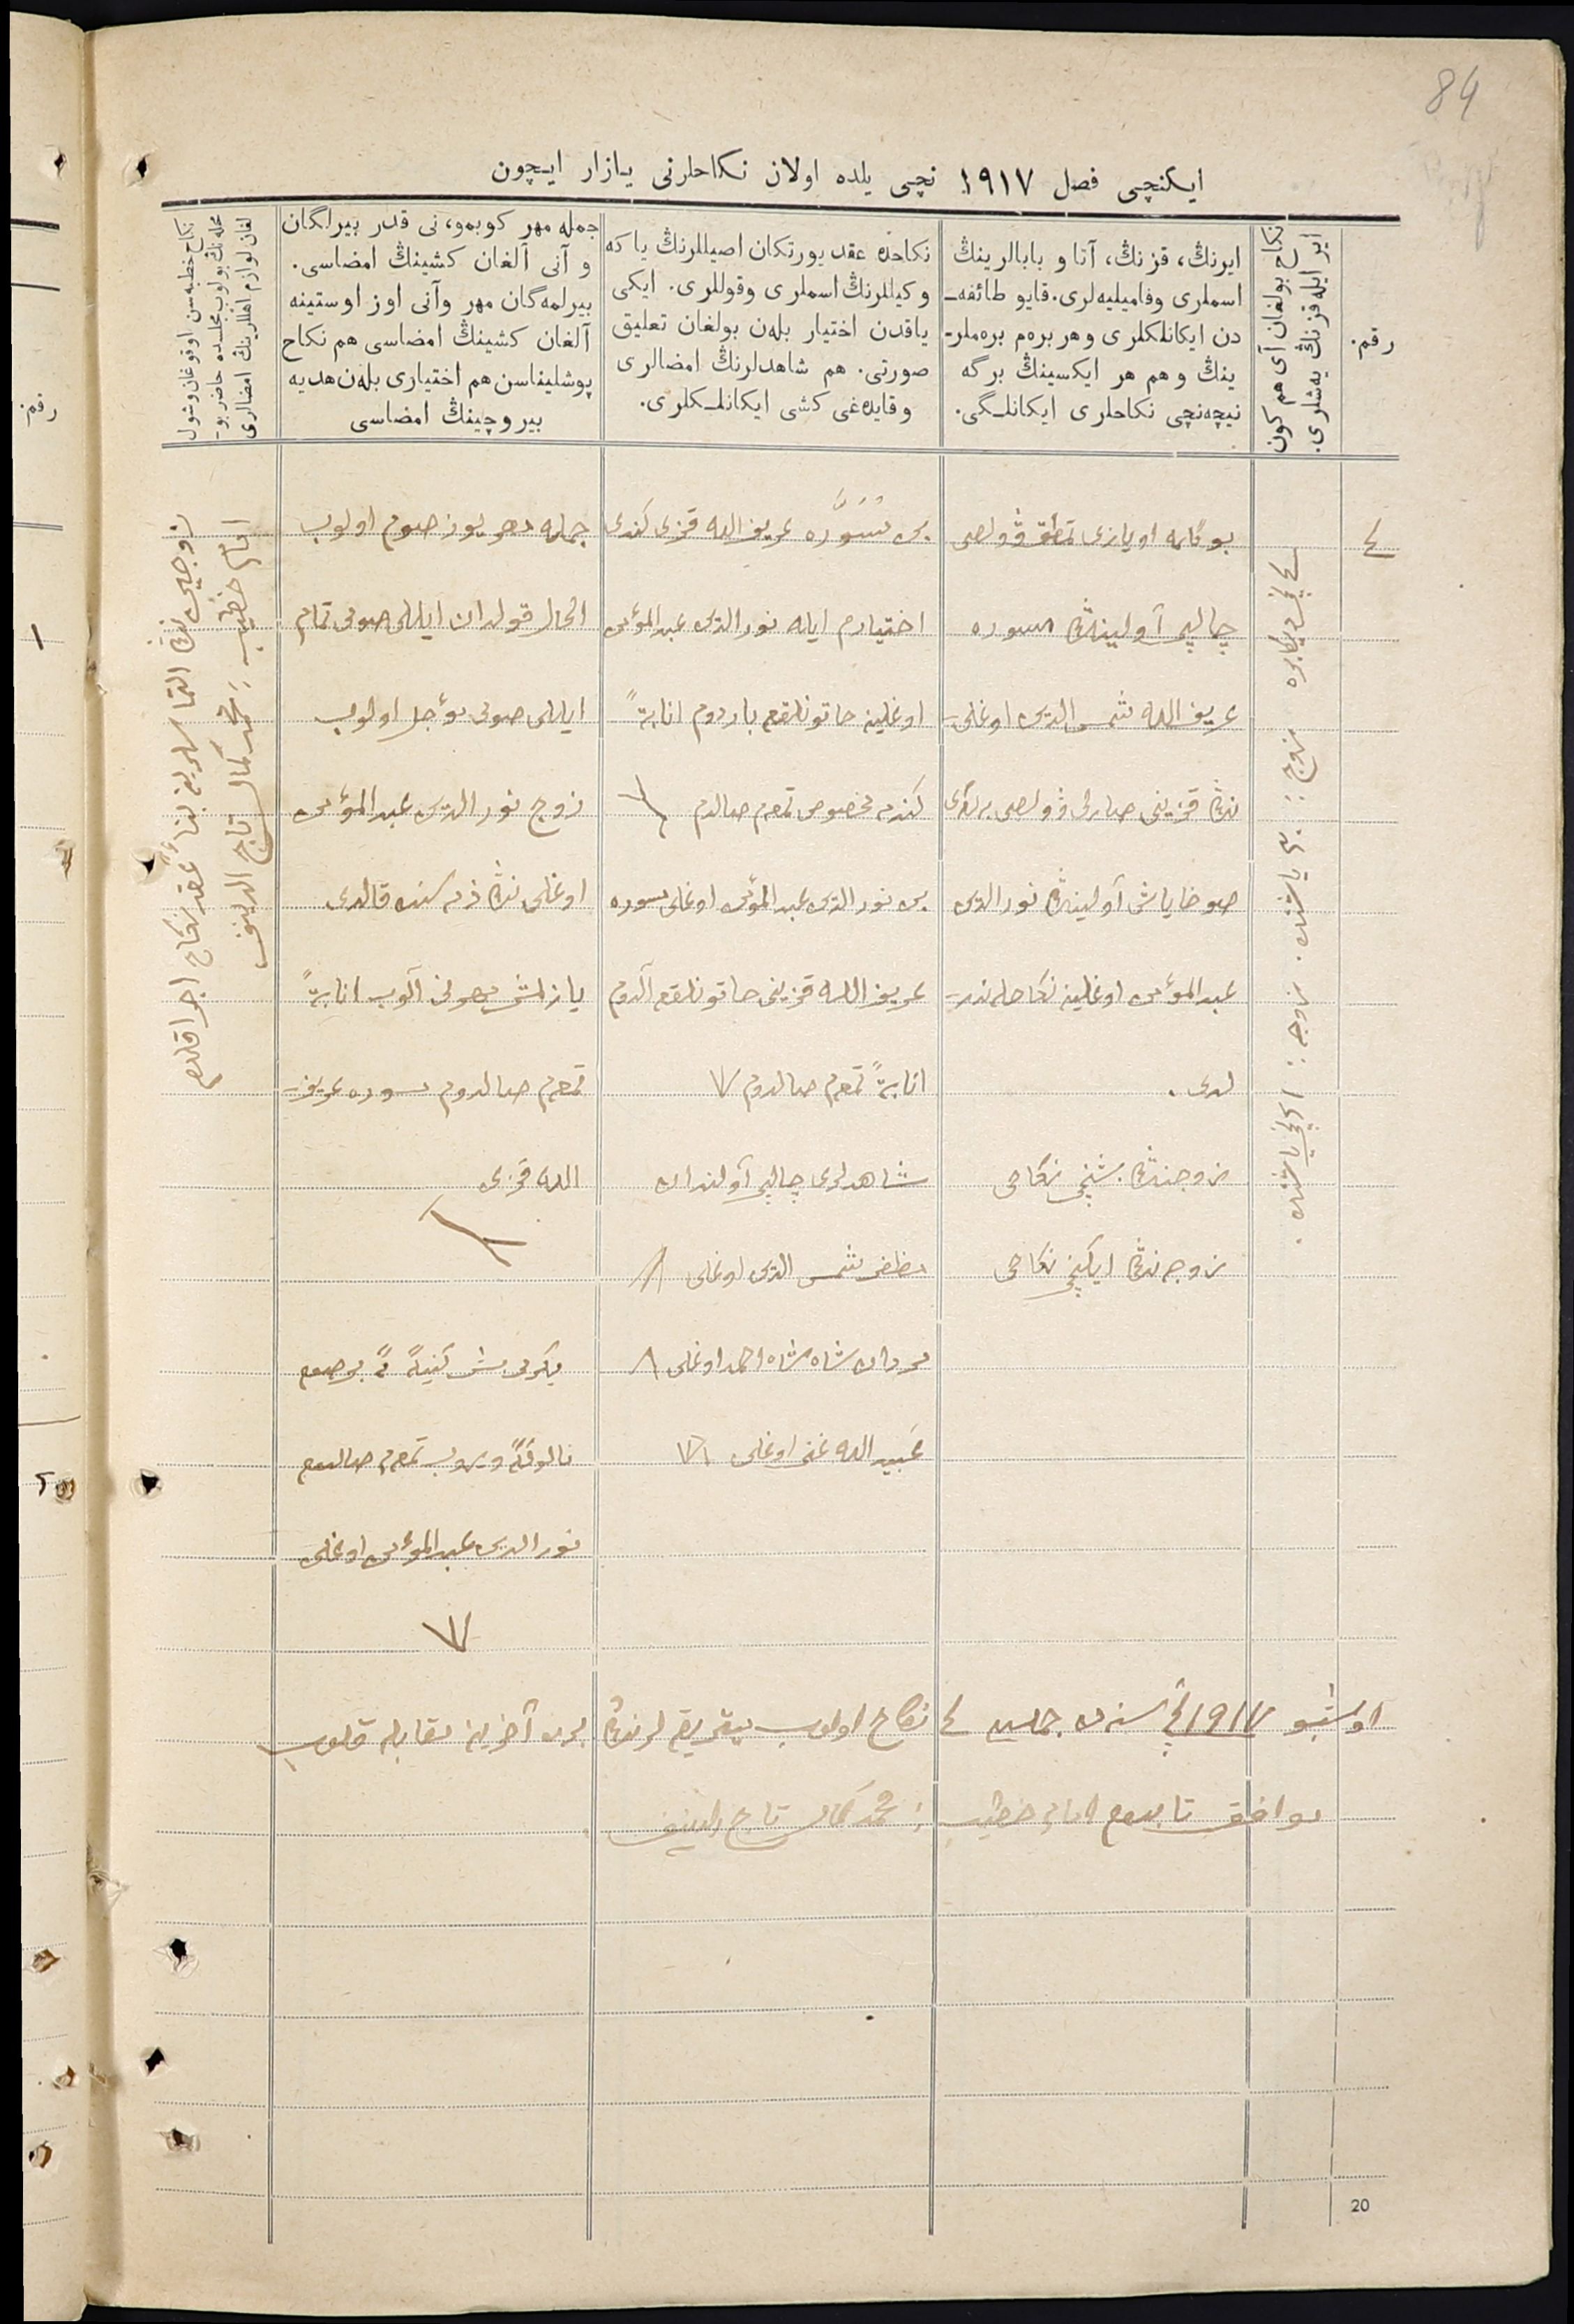 84
ایکنچی فصل ۱۹۱۷ نچی یلده اولان نکاحلرنی یازار ایچون
رقم.
نکاح بولغان آی هم کون
ایر ایله قزنڭ یەشلری.
ایرنڭ، قزنڭ، آتا و بابالرینڭ
اسملری وفامیلیەلری. قایو طائفەـ
دن ایکانلکلری و هر برەم برەملرـ
ینڭ و هم هر ایکسینڭ برگه
نیچەنچی نکاحلری ایکانلـگی.
نکاحده عقد یورتکان اصیللرنڭ یا که
وکیللرنڭ اسملری وقوللری. ایکی
یاقدن اختیار بلەن بولغان تعلیق
صورتی. هم شاهدلرنڭ امضالری
وقایدەغی کشی ایکانلـکلری.
جمله مهر کوبمو، نی قدر بیرلگان
و آنی آلغان کشینڭ امضاسی.
بیرلمەگان مهر وآنی اوز اوستینه
آلغان کشینڭ امضاسی هم نکاح
پوشلیناسن هم اختیاری بلەن هدیه
بیروچینڭ امضاسی
نکاح خطبەسن اوقوغان وشول
محلەنڭ بولوب مجلسده حاضر بوـ
لغان لوازم اهللرینڭ امضالری
رقم.
۱
۲
۴
زوج: ۳۰ یاشنده. زوجه:
بوگلمه اویازی تمطق ڤولصی
چالپی آولینڭ مسوره
عریف الله شمس الدین اوغلیـ
ننڭ قزینی صارلی ڤولصی
صوخایاش آولینڭ نورالدین
عبدالمؤمن اوغلینه نکاحلندـ
لدی.
زوجننڭ بشنچی نکاحی
زوجەننڭ ایکنچی نکاحی
من مسوّره عریف الله قزی کندی
اختیارم ایله نورالدین عبدالمؤمن
اوغلینه خاتونلقغه باردوم انابةً
کندم مخصوص تمغم صالدم
من نورالدین عبدالمؤمن اوغلی مسوره
عریف الله قزینی خاتونلقغه آلدوم
انابةً تمغم صالدوم
شاهدلری چالپی آولندان
مظفر شمس الدین اوغلی
مردان شاه شاه احمد اوغلی
عبید الله غنی اوغلی
جمله مهر یوز صوم اولوب
الحال قولدان ایللی صومی تمام
ایللی صومی مؤجل اولوب
زوج نورالدین عبدالمؤمن
اوغلی ننڭ ذمەسنده قالدی
یازلمش مهرنی آلوب انابةً
تمغم صالدوم مسوره عریفـ
الله قزی
یکرمی بش
ویروب تمغم صالدم
نورالدین عبدالمؤمن اوغلی
عقد نکاح اجرا قلدم
امام خطیب: محمد کمال تاج الدینف
اوشبو ۱۹۱۷نچی سنەده جملەسی ۴ نکاح اولوب بر آخرینه مقابله قلوب
موافق تابدم امام خطیب: محمد کمال تاج الدینف
20